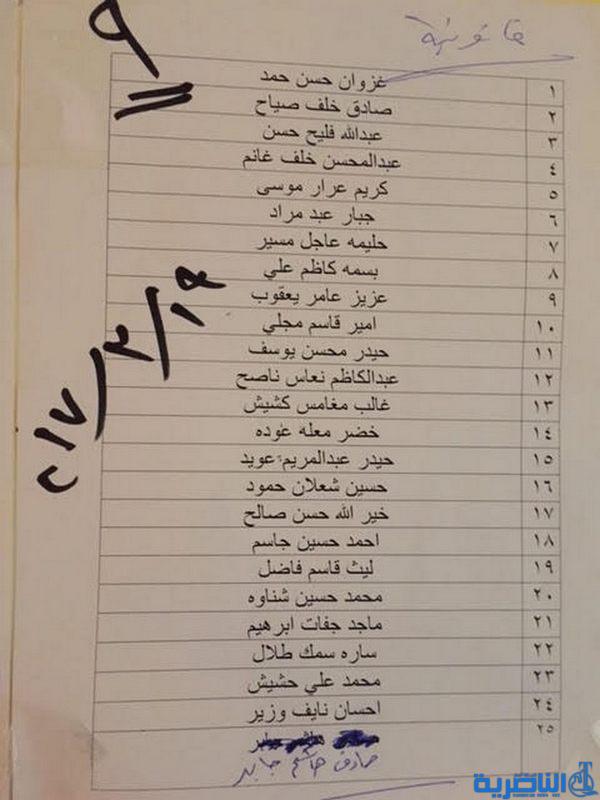 قانونية
٩
١ غزوان حسن حمد
٢ صادق خلف صياح
٣ عبدالله فليح حسن
٤ عبدالمحسن خلف غانم
٥ كريم عرار موسى
٦ جبار عبد مراد
٧ حليمه عاجل مسير
٨ بسمه كاظم علي
٩ عزيز عامر يعقوب
١٠ امير قاسم مجلي
١١ حيدر محسن يوسف
١٢ عبدالكاظم نعاس ناصح
١٣ غالب مغامس كشيش
١٤ خضر معله عوده
١٥ حيدر عبدالمريم عويد
١٦ حسين شعلان حمود
١٧ خير الله حسن صالح
١٨ احمد حسين جاسم
١٩ ليث قاسم فاضل
٢٠ محمد حسين شناوه
٢١ ماجد جفات ابرهيم
٢٢ ساره سمك طلال
٢٣ محمد علي حشيش
٢٤ احسان نايف وزير
٢٥
صادق هاشم جابر
الناصرية